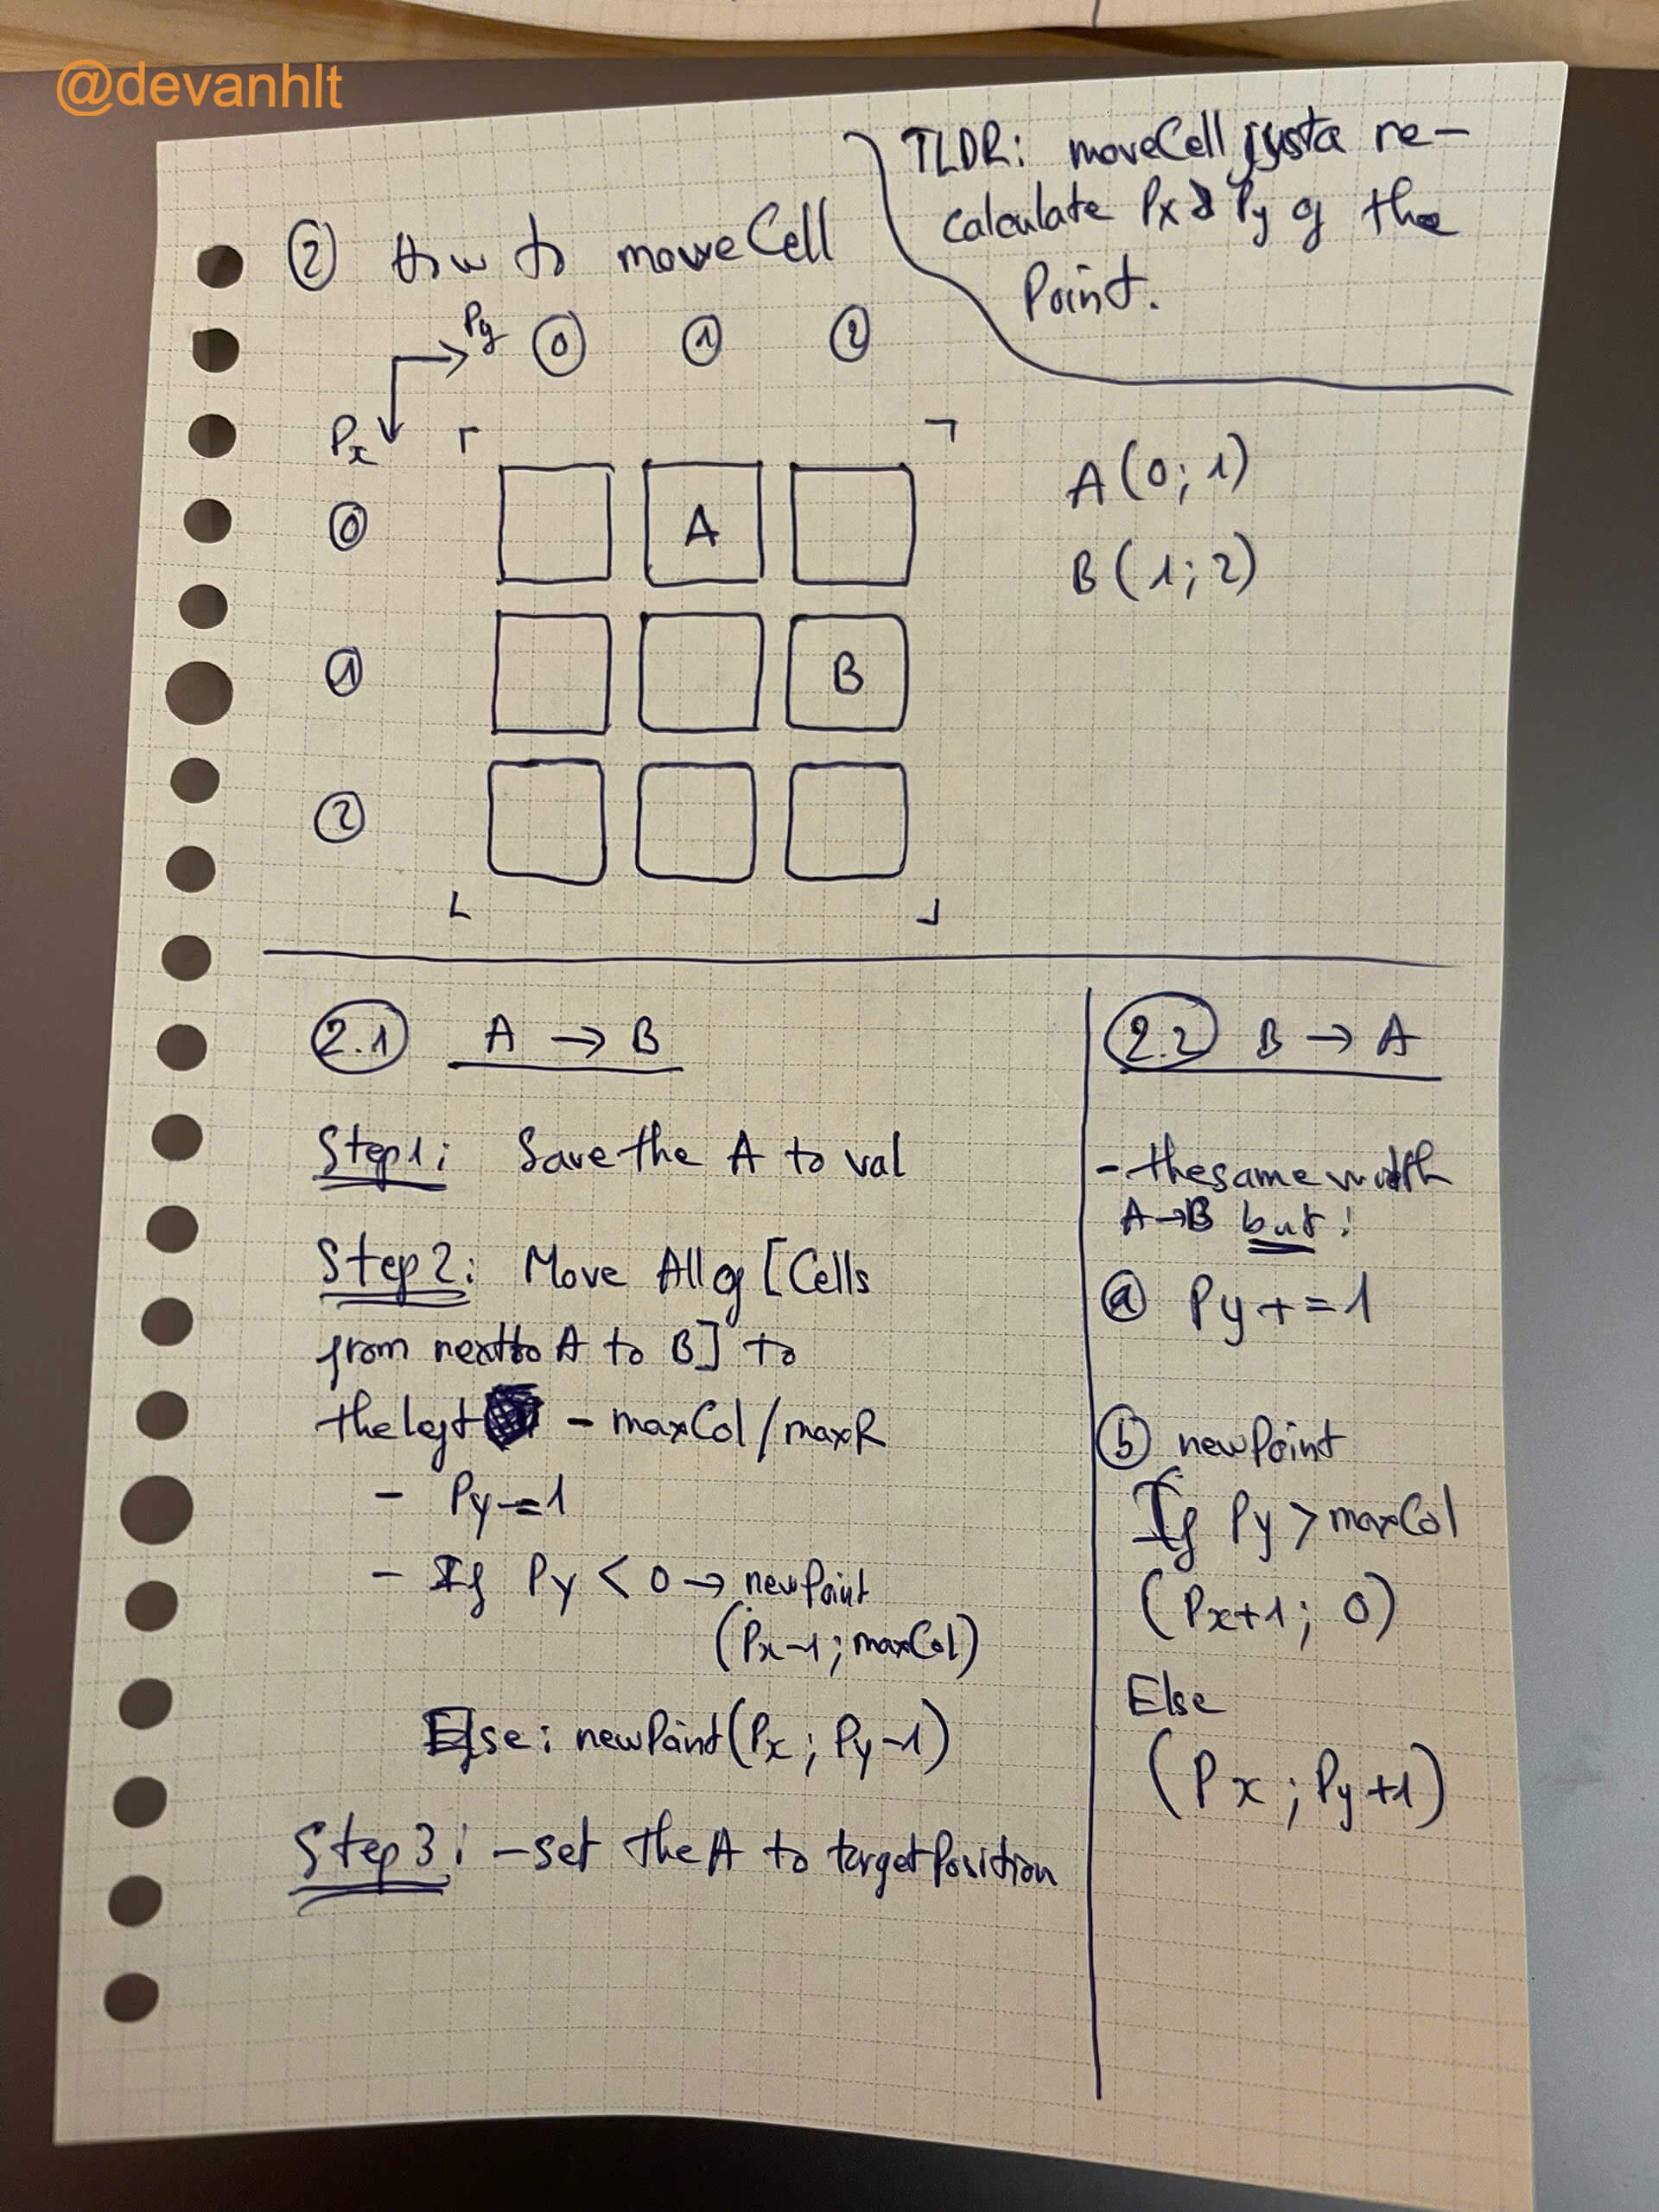 @devanhlt
TLDR: moveCell justa re-
calculate Px & Py of the
Point.
② How to moveCell
Py ⓪ ① ②
Px
⓪ A
① B
②
A(0;1)
B(1;2)
2.1 A → B
Step1: Save the A to val
Step2: Move All of [Cells
from next to A to B] to
the left - maxCol/maxR
- Py-=1
- If Py < 0 → newPoint
(Px-1; maxCol)
Else: newPoint(Px; Py-1)
Step3: -set the A to targetPosition
2.2 B → A
- the same width
A→B but:
ⓐ Py+=1
ⓑ newPoint
If Py > maxCol
(Px+1; 0)
Else
(Px; Py+1)